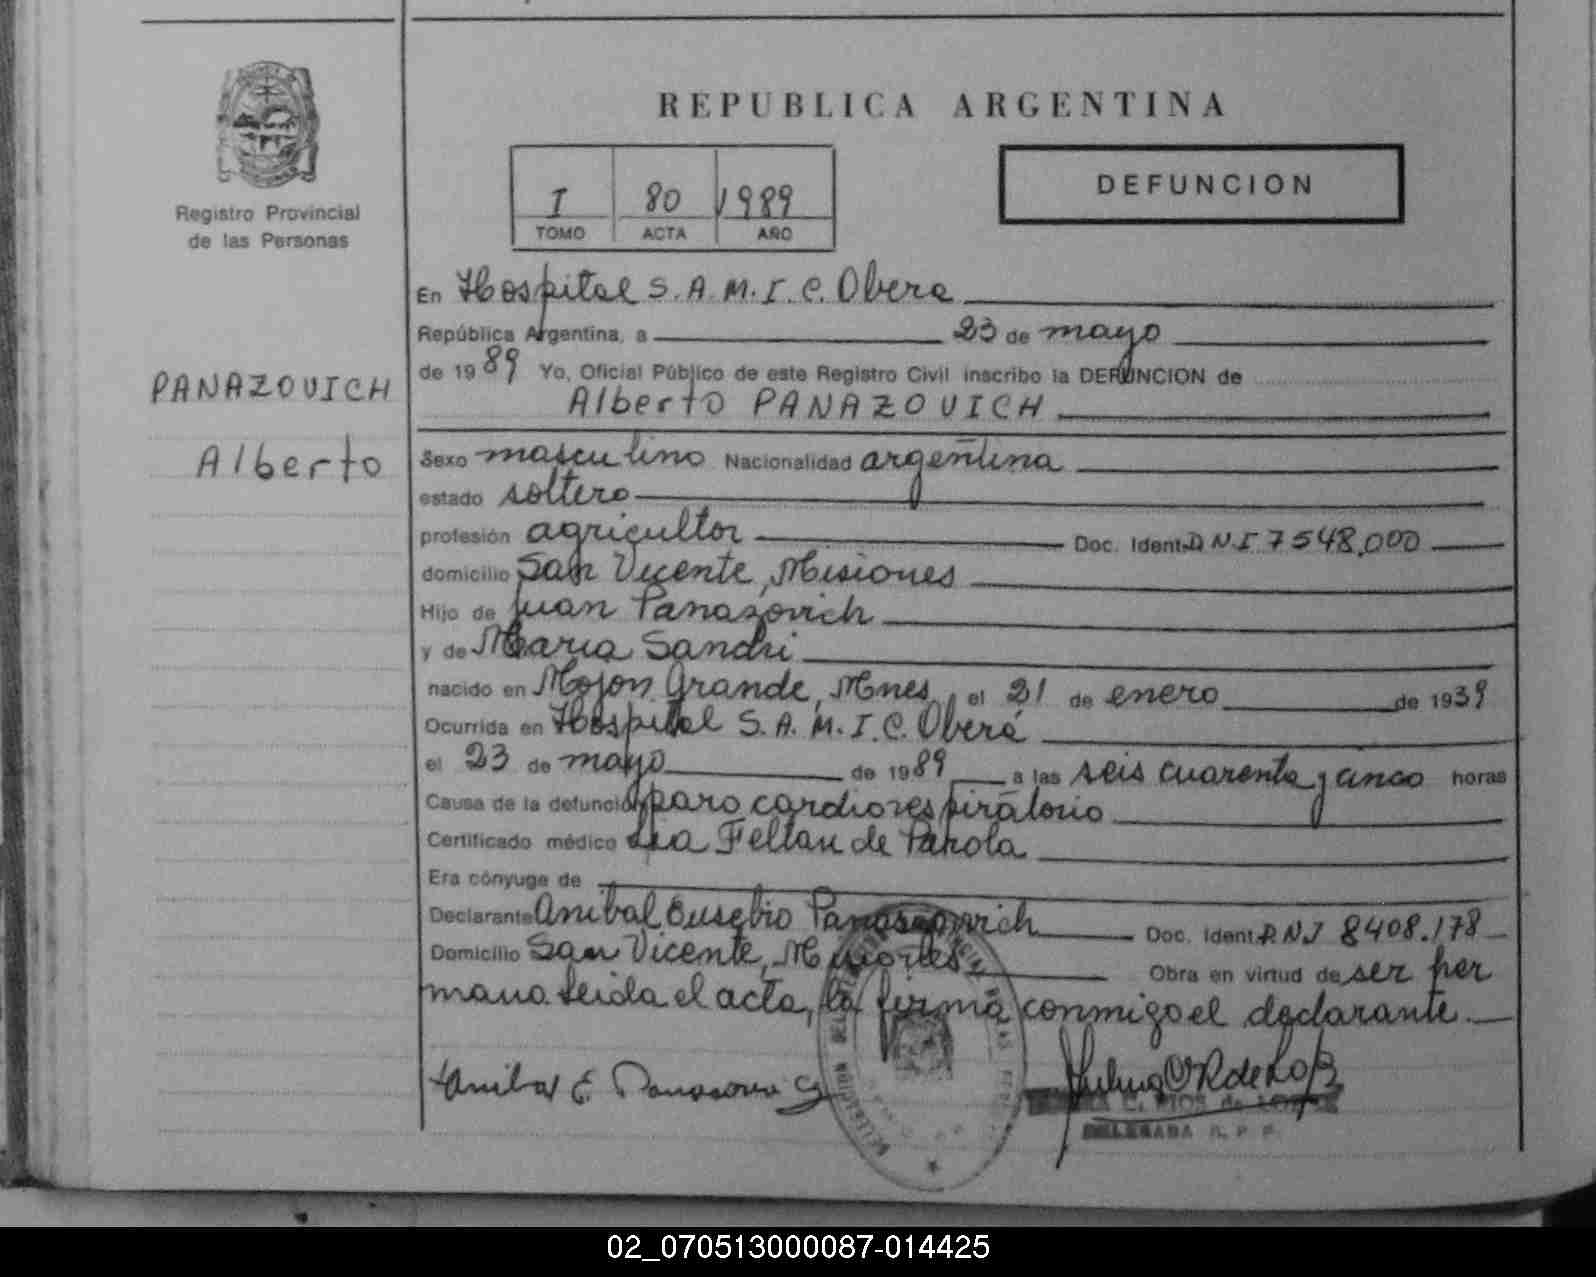 REPUBLICA ARGENTINA
I 80 1989
TOMO ACTA AÑO
DEFUNCION
Registro Provincial
de las Personas
PANAZOVICH
Alberto
En Hospital S.A.M.I.C. Obera
República Argentina, a 23 de mayo
de 1989 Yo, Oficial Público de este Registro Civil inscribo la DEFUNCION de
Alberto PANAZOVICH
Sexo masculino Nacionalidad argentina
estado soltero
profesión agricultor Doc. Ident. D N I 7548.000
domicilio San Vicente, Misiones
Hijo de Juan Panazovich
y de Maria Sandri
nacido en Mojon Grande, Mnes, el 21 de enero de 1939
Ocurrida en Hospital S.A.M.I.C. Oberá
el 23 de mayo de 1989 a las seis cuarenta y cinco horas
Causa de la defunción paro cardiorespiratorio
Certificado médico de Parola
Era cónyuge de
Declarante Anibal Eusebio Doc. Ident. D.N.I 8408.178
Domicilio San Vicente, Misiones Obra en virtud de ser her
mano. Leida el acta, la firma conmigo el declarante.
Anibal E.
DELEGADA R. P. P.
02_070513000087-014425